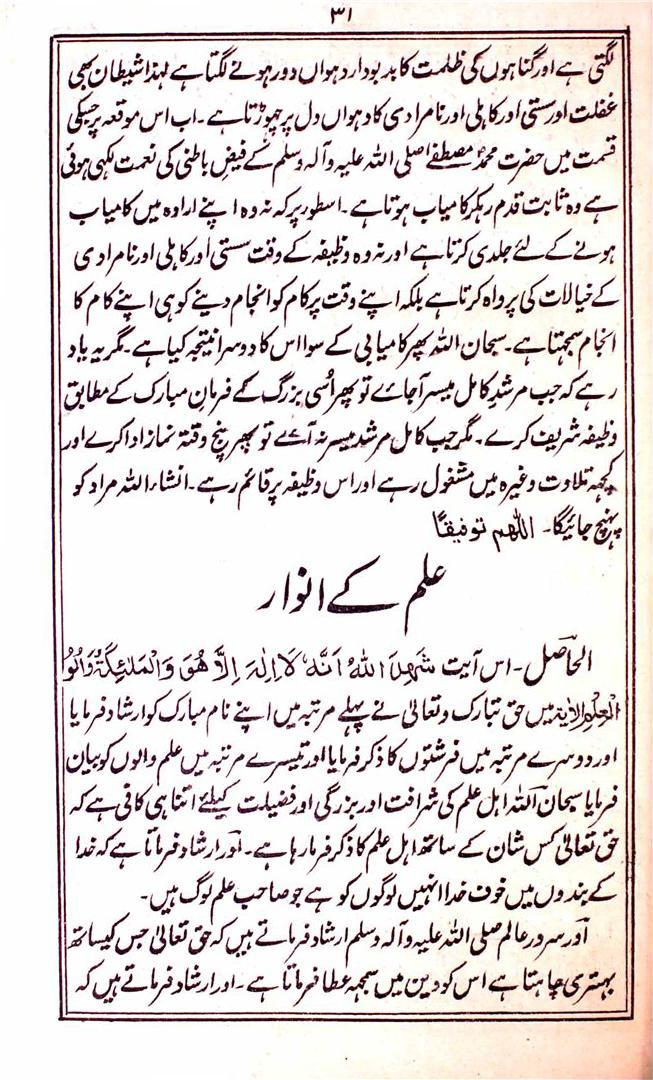 ۳۱
لگتی ہے اور گناہوں کی ظلمت کا بدبودار دہواں دور ہونے لگتا ہے لہذا شیطان بھی
غفلت اور سستی اور کاہلی اور نامرادی کا دہواں دل پر چھوڑتا ہے۔ اب اس موقعہ پر جسکی
قسمت میں حضرت محمدؐ مصطفےٰ صلی اللہ علیہ وآلہ وسلم کے فیضِ باطنی کی نعمت لکہی ہوئی
ہے وہ ثابت قدم رہکر کامیاب ہوتا ہے۔ اسطور پر کہ نہ وہ اپنے ارادہ میں کامیاب
ہونے کے لئے جلدی کرتا ہے اور نہ وہ وظیفہ کے وقت سستی اور کاہلی اور نامرادی
کے خیالات کی پرواہ کرتا ہے بلکہ اپنے وقت پر کام کو انجام دینے کو ہی اپنے کام کا
انجام سمجہتا ہے۔ سبحان اللہ پھر کامیابی کے سوا اس کا دوسرا نتیجہ کیا ہے۔ مگر یہ یاد
رہے کہ جب مرشدِ کامل میسر آجائے تو پھر اُسی بزرگ کے فرمانِ مبارک کے مطابق
وظیفہ شریف کرے۔ مگر جب کامل مرشد میسر نہ آئے تو پھر پنج وقتہ نماز ادا کرے اور
کچہہ تلاوت وغیرہ میں مشغول رہے اور اس وظیفہ پر قائم رہے۔ انشاء اللہ مراد کو
پہنچ جائیگا۔ اللھم توفیقًا
علم کے انوار
الحاصل۔ اس آیت شَهِدَ اللّٰهُ اَنَّهٗ لَا اِلٰهَ اِلَّا هُوَ وَالْمَلٰئِكَةُ وَاُولُوا
الْعِلْمِ الاٰیۃ میں حق تبارک وتعالیٰ نے پہلے مرتبہ میں اپنے نام مبارک کو ارشاد فرمایا
اور دوسرے مرتبہ میں فرشتوں کا ذکر فرمایا اور تیسرے مرتبہ میں علم والوں کو بیان
فرمایا سبحان اللہ اہل علم کی شرافت اور بزرگی اور فضیلت کیلئے اتنا ہی کافی ہے کہ
حق تعالیٰ کس شان کے ساتھ اہل علم کا ذکر فرما رہا ہے۔ اور ارشاد فرماتا ہے کہ خدا
کے بندوں میں خوف خدا انہیں لوگوں کو ہے جو صاحب علم لوگ ہیں۔
اور سرورِ عالم صلی اللہ علیہ وآلہ وسلم ارشاد فرماتے ہیں کہ حق تعالیٰ جس کیساتھ
بہتری چاہتا ہے اس کو دین میں سمجہہ عطا فرماتا ہے۔ اور ارشاد فرماتے ہیں کہ